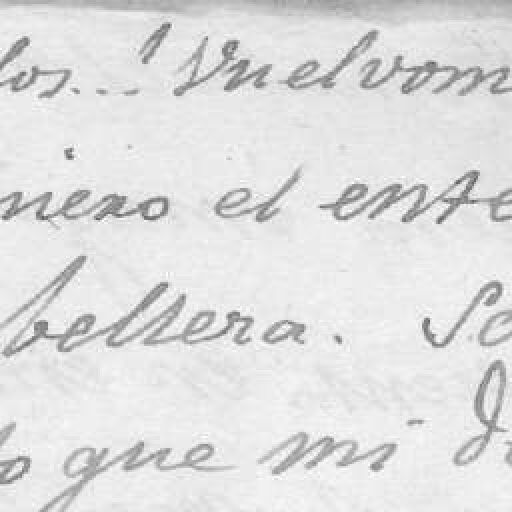 los...! Vuelvom
niero el ente
beltera. So
to que mi D